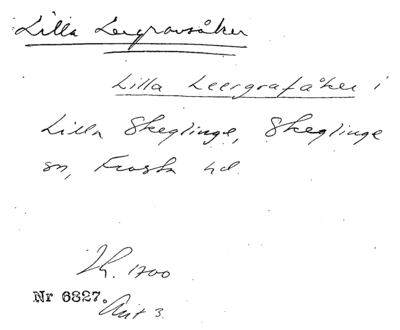 Lilla Lergravsåker
Lilla Leergrafåker i
Lilla Skeglinge, Skeglinge
sn, Frosta hd.
Lh. 1700
Nr 6827. Avit 3.